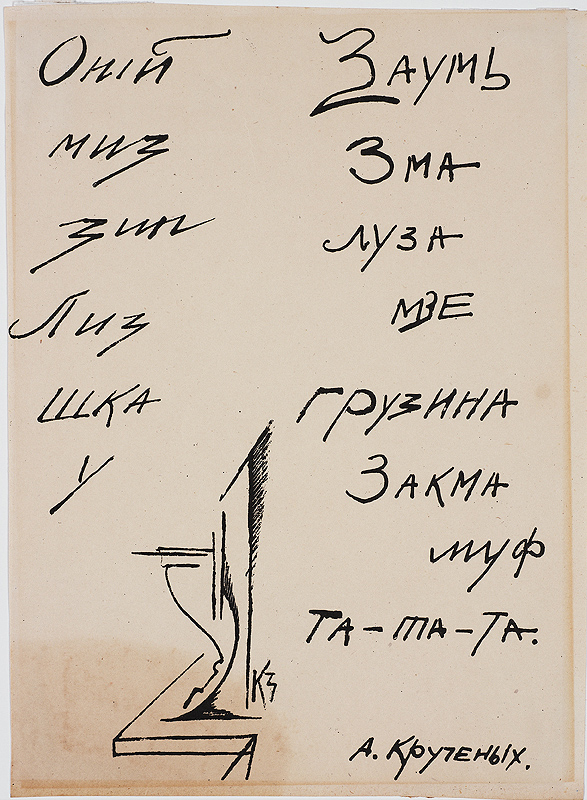 Оній
миз
зин
Лиз
шка
у
Заумь
Зма
луза
мзе
грузина
Закма
муф
та-та-та.
КЗ
А. Крученых.